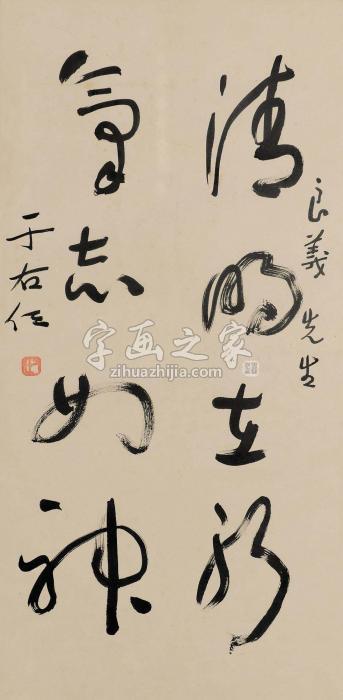 良義先生
清明在躬
氣志如神
于右任
字画之家
zihuazhijia.com